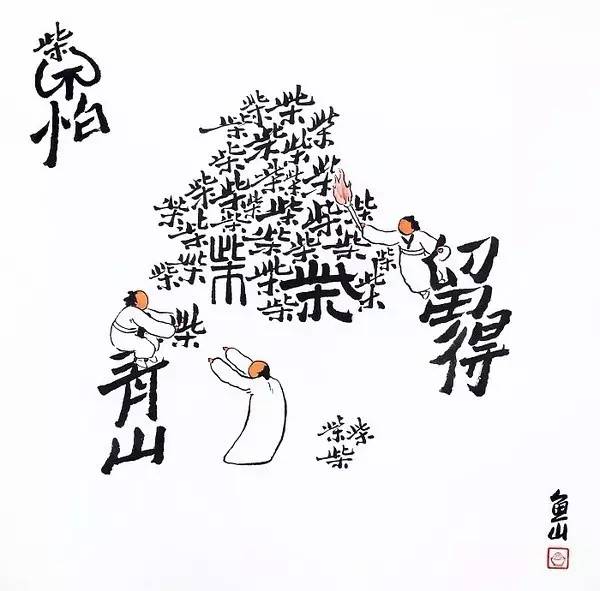 柴
不
怕
柴柴
柴柴
柴柴柴
柴柴柴柴柴
柴柴柴柴柴柴
柴柴柴柴柴柴
柴柴柴柴柴柴
柴
留
得
柴
青
山
柴柴
柴
鱼
山